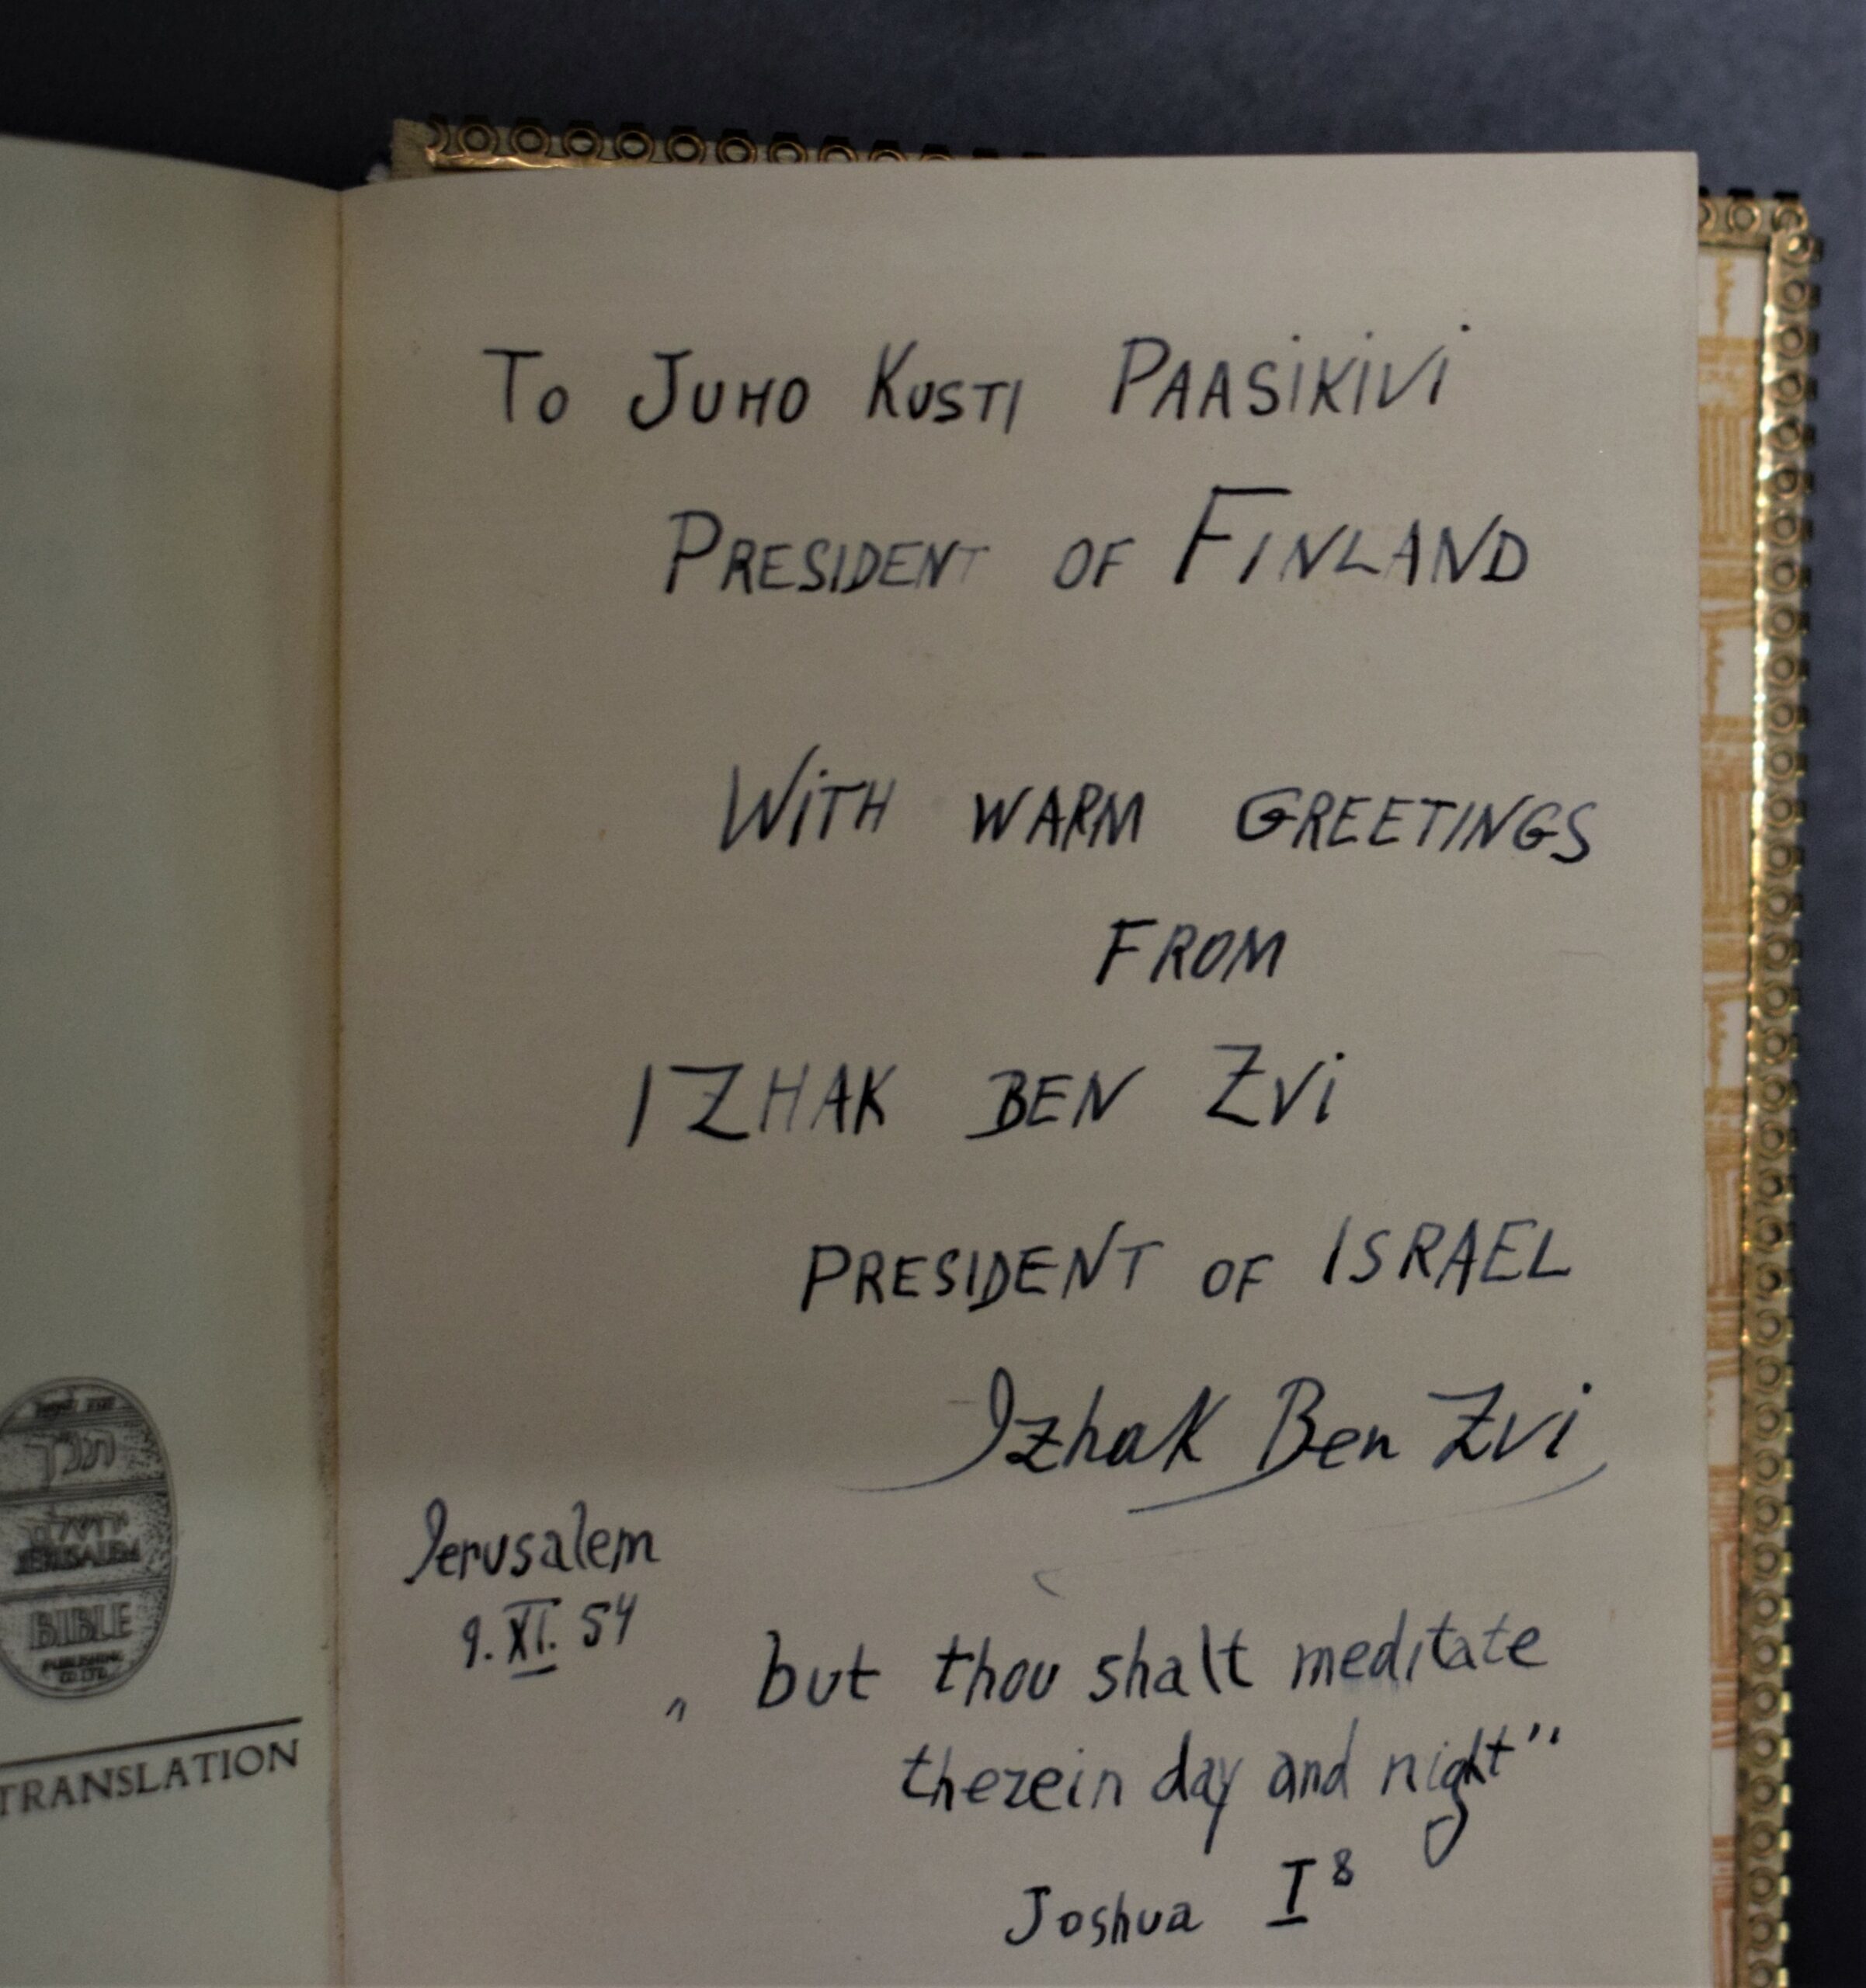 To Juho Kusti Paasikivi
President of Finland
With warm Greetings
from
Izhak Ben Zvi
President of Israel
Izhak Ben Zvi
Jerusalem
9. XI. 54
„ but thou shalt meditate
therein day and night"
Joshua I 8
תנ״ך
ירושלים
JERUSALEM
BIBLE
PUBLISHING
CO. LTD.
TRANSLATION